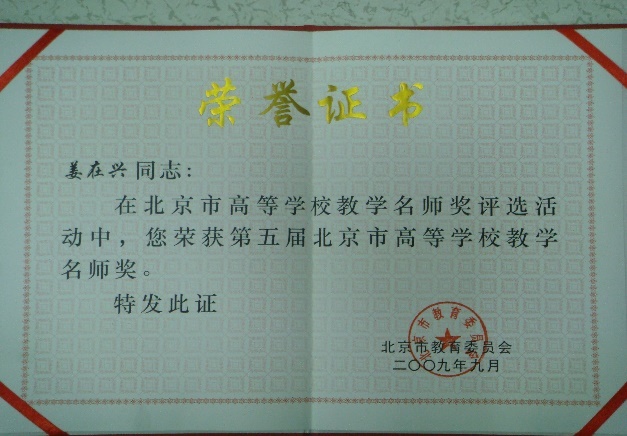 荣誉证书
姜在兴同志：
在北京市高等学校教学名师奖评选活
动中，您荣获第五届北京市高等学校教学
名师奖。
特发此证
北京市教育委员会
北京市教育委员会
二〇〇九年九月